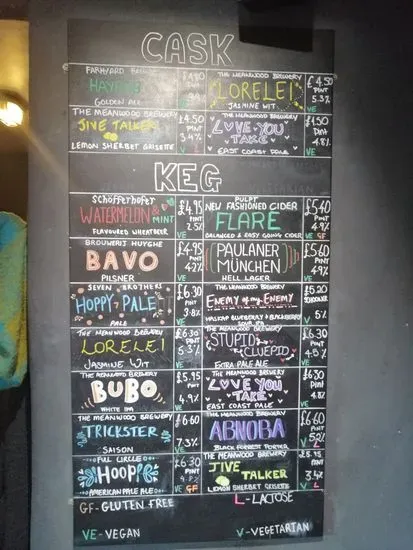 CASK
FARMYARD
GOLDEN ALE
THE MEANWOOD BREWERY
LORELEI
JASMINE WIT
£4.50
PINT
5.3%
VE
THE MEANWOOD BREWERY
JIVE TALKER
LEMON SHERBET GRISETTE
£4.50
PINT
3.4%
V L
THE MEANWOOD BREWERY
LOVE YOU
TAKE
EAST COAST PALE
£4.50
PINT
4.8%
VE
KEG
SCHOFFERHOFER
WATERMELON &
MINT
FLAVOURED WHEATBEER
£4.95
PINT
2.5%
VE
PULPT
NEW FASHIONED CIDER
FLARE
BALANCED & EASY GOING CIDER
£5.40
PINT
4.9%
VE GF
BROUWERIJ HUYGHE
BAVO
PILSNER
£4.95
PINT
4.2%
VE
PAULANER
MÜNCHEN
HELL LAGER
£5.60
PINT
4.9%
VE
SEVEN BROTHERS
HOPPY PALE
PALE
£6.30
PINT
3.8%
VE
THE MEANWOOD BREWERY
ENEMY of my ENEMY
HASKAP BLUEBERRY & BLACKBERRY
SOUR IPA
£5.20
SCHOONER
5%
V
THE MEANWOOD BREWERY
LORELEI
JASMINE WIT
£6.30
PINT
5.3%
VE
THE MEANWOOD BREWERY
STUPID
CLUEPID
EXTRA PALE ALE
£6.30
PINT
4.5%
VE
THE MEANWOOD BREWERY
BUBO
WHITE IPA
£5.95
PINT
4.9%
VE
THE MEANWOOD BREWERY
LOVE YOU
TAKE
EAST COAST PALE
£6.30
PINT
4.8%
VE
THE MEANWOOD BREWERY
TRICKSTER
SAISON
£6.60
7.3%
VE
THE MEANWOOD BREWERY
ABNOBA
BLACK FOREST PORTER
£6.60
PINT
V L
FULL CIRCLE
HOOP!
AMERICAN PALE ALE
£6.30
PINT
VE GF
THE MEANWOOD BREWERY
JIVE
TALKER
LEMON SHERBET GRISETTE
PINT
3.4%
V L
GF-GLUTEN FREE
L-LACTOSE
VE-VEGAN
V-VEGETARIAN